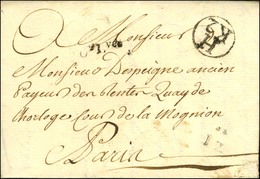 Monsieur
Monsieur Despeigne ancien
Payeur des Rentes Quay de
Lhorloge Cour de la Mognion
Paris